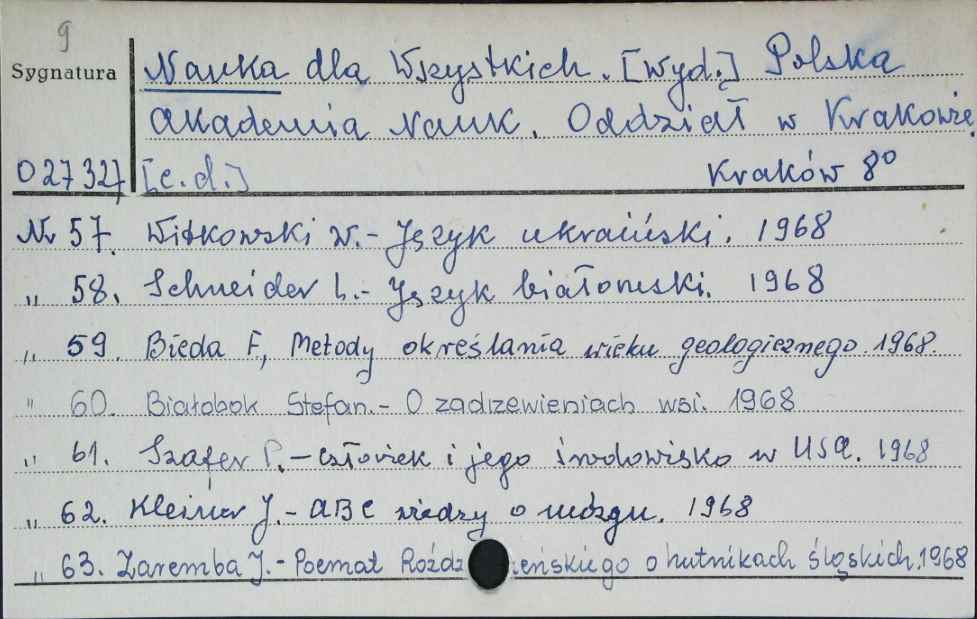 9
Sygnatura
Nauka dla Wszystkich. [Wyd.] Polska
Akademia Nauk. Oddział w Krakowie
027327 [c.d.] Kraków 8°
Nr 57. Witkowski W.- Język ukraiński. 1968
" 58. Schneider L.- Język białoruski. 1968
" 59. Bieda F., Metody określania wieku geologicznego. 1968.
" 60. Białobok Stefan.- O zadrzewieniach wsi. 1968
" 61. Szafer P.- człowiek i jego środowisko w USA. 1968
" 62. Kleiner J.- ABC wiedzy o mózgu. 1968
" 63. Zaremba J.- Poemat Roździeńskiego o hutnikach śląskich. 1968